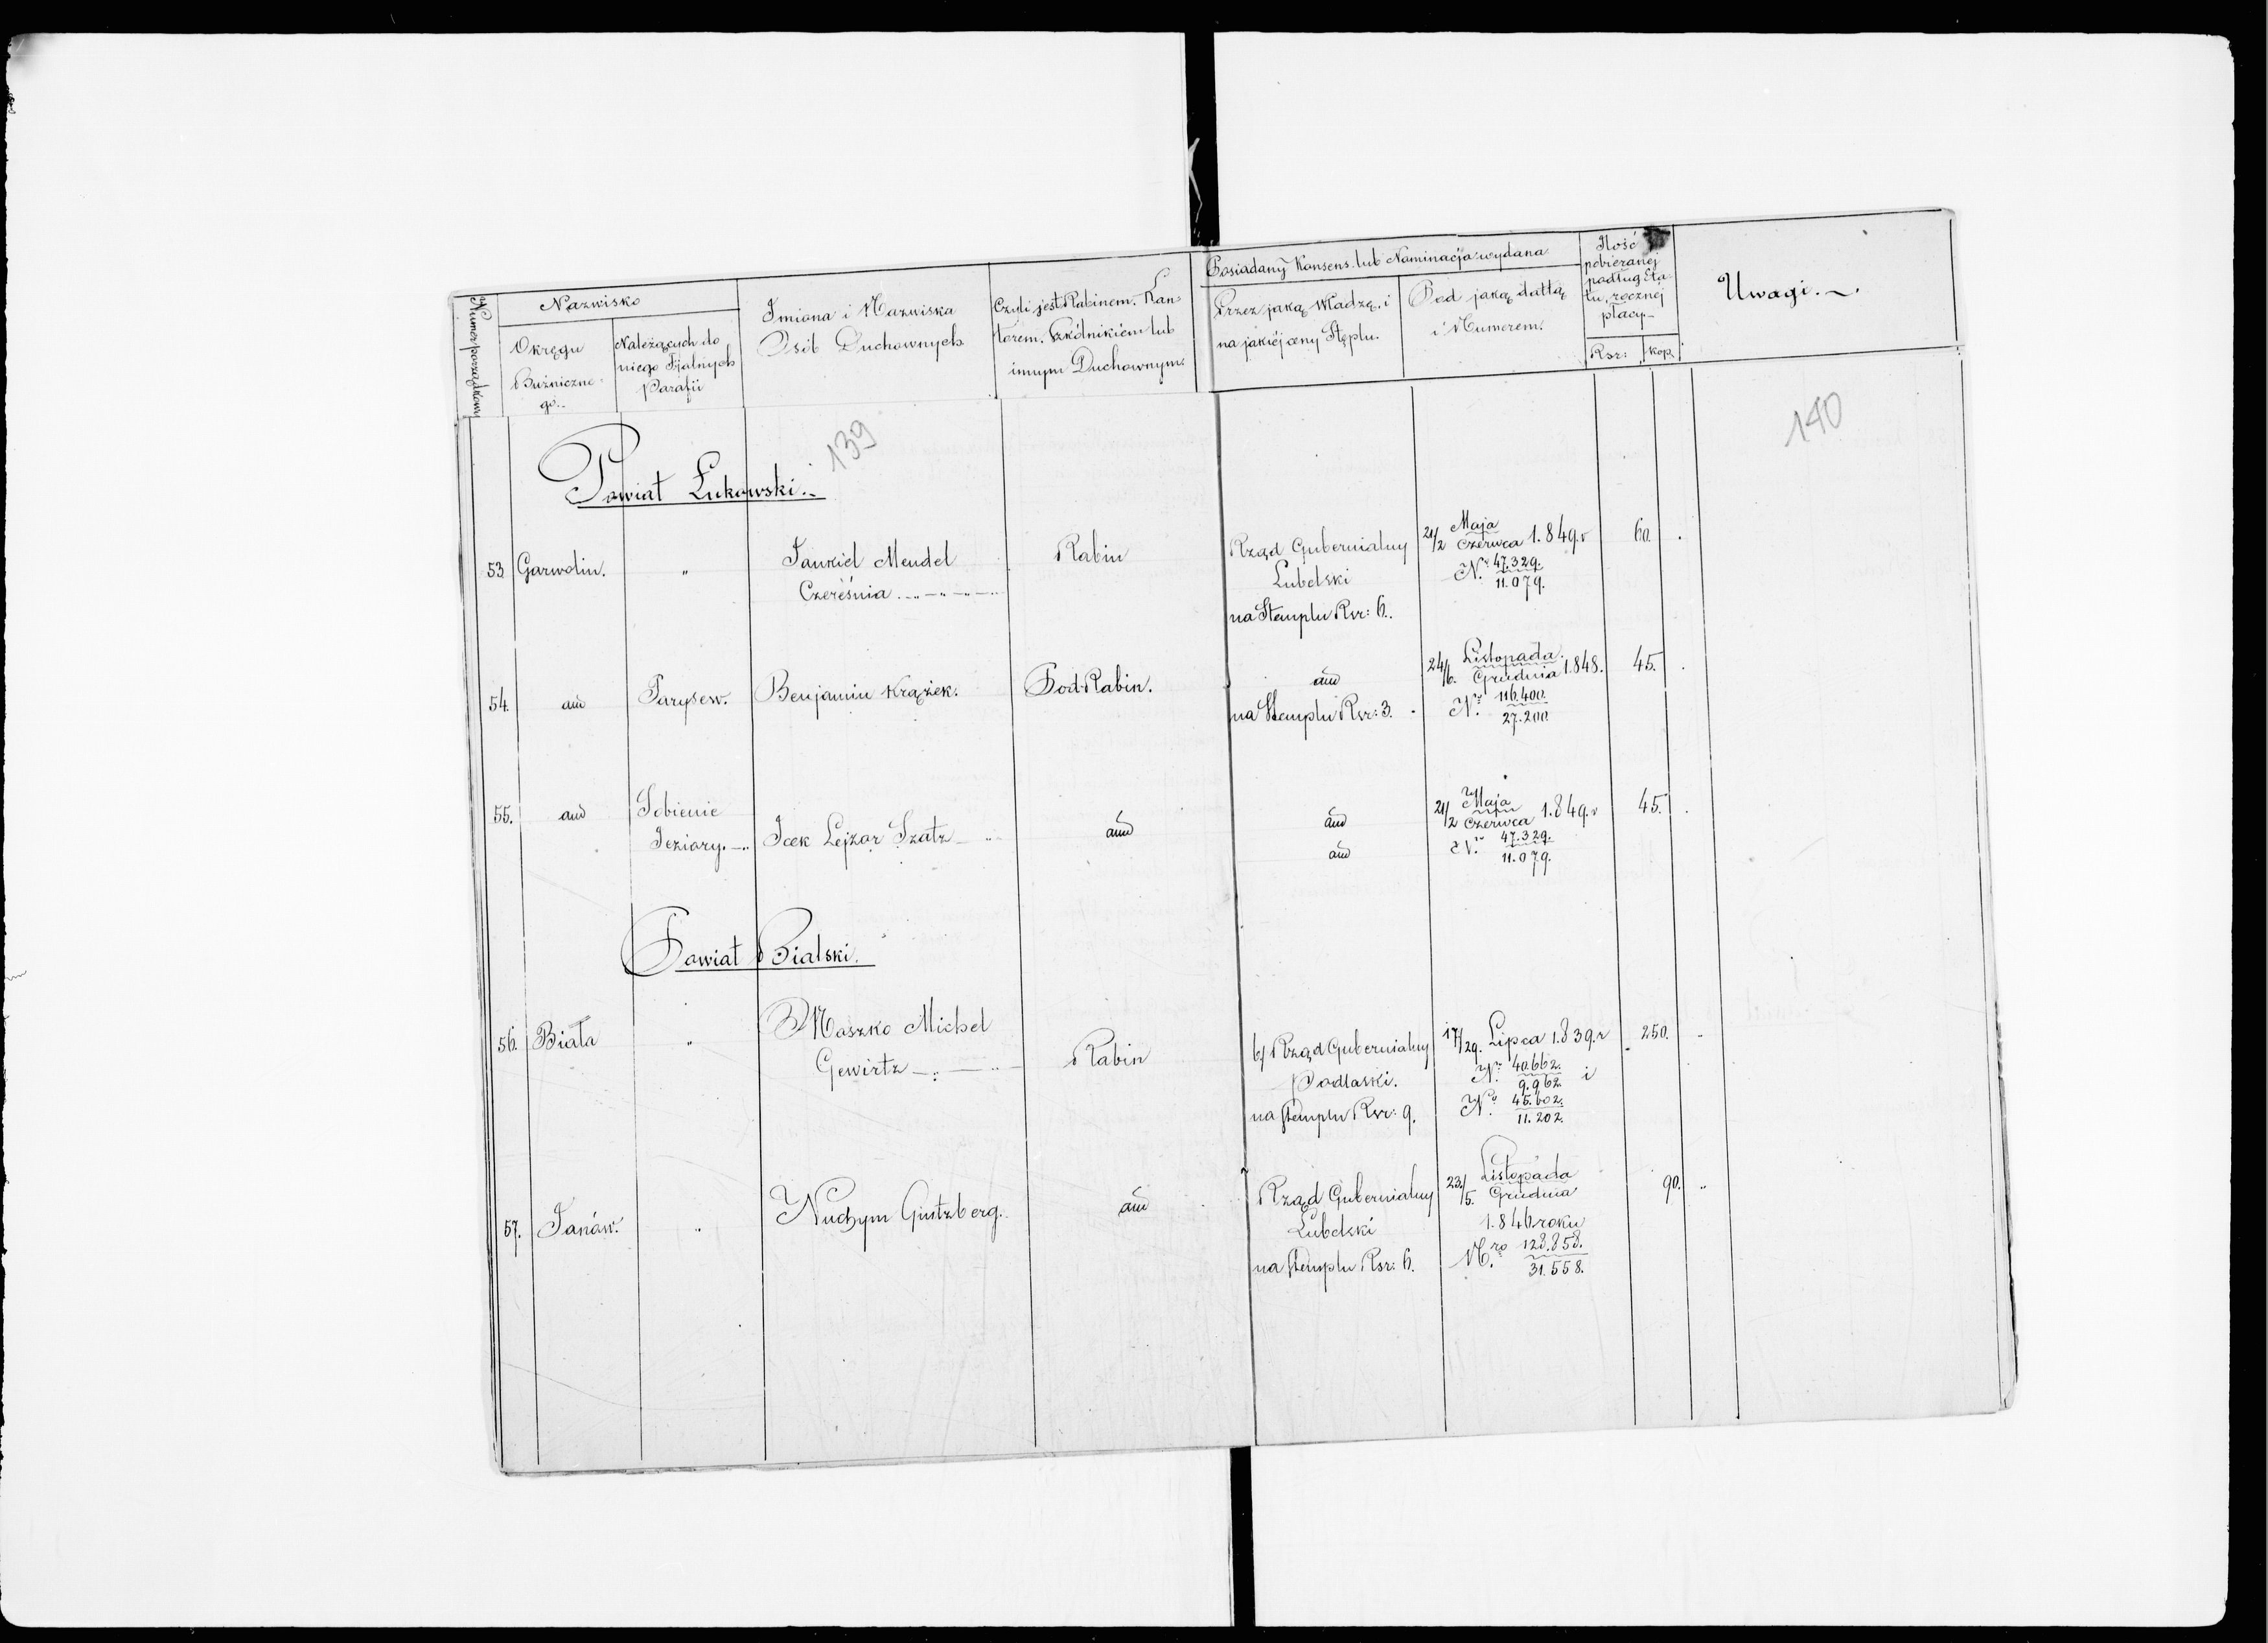 Numer porządkowy
Nazwisko
Okręgu Bużniczne-
go.-
Należących do
niego Fjalnych
Parafii
Imiona i Nazwiska
Osób Duchownych
Czyli jest Rabinem. Kan-
torem. Szkólnikiem lub
innym Duchownym.
Posiadany Konsens lub Nominacja wydana
Przez jaką Władzę, i
na jakiéj ceny Stęplu.
Pod jaką dattą
i Numerem.
Ilość
pobieranéj
podług Eta-
tu, rocznéj
płacy-
Rsr: kop.
Uwagi.
139
140
Powiat Łukowski.
53 Garwolin. „ Jankiel Mendel Rabin Rząd Gubernialny 21/2 Maja/Czerwca 1.849.r 60. .
Czereśnia Lubelski No. 47.329./11.079.
na Stemplu Rsr: 6.
54. aud Parysew. Benjamin Krążek. Pod-Rabin. aud 24/6. Listopada/Grudnia 1.848. 45. .
na Stemplu Rsr: 3. No. 116.400./27.200.
55. aud Sobienie aud 21/2 Maja/Czerwca 1.849.r 45. .
Jeziory. Icek Lejzor Szatz aud aud No. 47.329./11.079.
Powiat Bialski.
56. Biała „ Moszko Michel Rabin b/ Rząd Gubernialny 17/29. Lipca 1.839.r 250. „
Gewirtz Podlaski. No. 40.662./9.962. i
na Stemplu Rsr: 9. No. 45.602./11.202.
57. Janów. „ Nuchym Gintzberg. aud Rząd Gubernialny 23/5. Listopada/Grudnia 90. „
Lubelski 1.846 roku
na Stemplu Rsr: 6. Nro. 128.858./31.558.